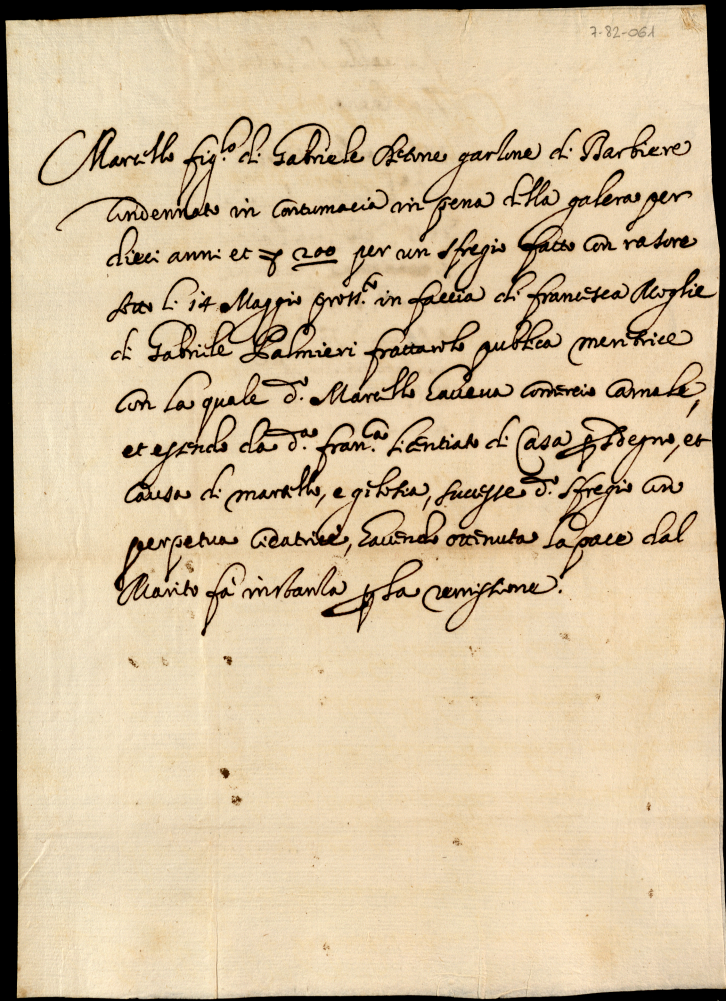 7-82-061
Marcello fig.lo di Gabriele garzone di Barbiere
Condennato in contumacia in pena della galera per
dieci anni et 200 per un sfregio fatto con rasore
sotto li 14 Maggio pross.o in faccia di Francesca Moglie
di Gabriele Palmieri fruttarolo publica meretrice
con la quale d.o Marcello haveva comercio carnale,
et essendo da d.a Fran.ca licentiato di Casa p sdegno, et
causa di martello, e gelosia, successe d.o sfregio con
perpetua cicatrice, havendo ottenuta la pace dal
Marito fà instanza p la remissione.